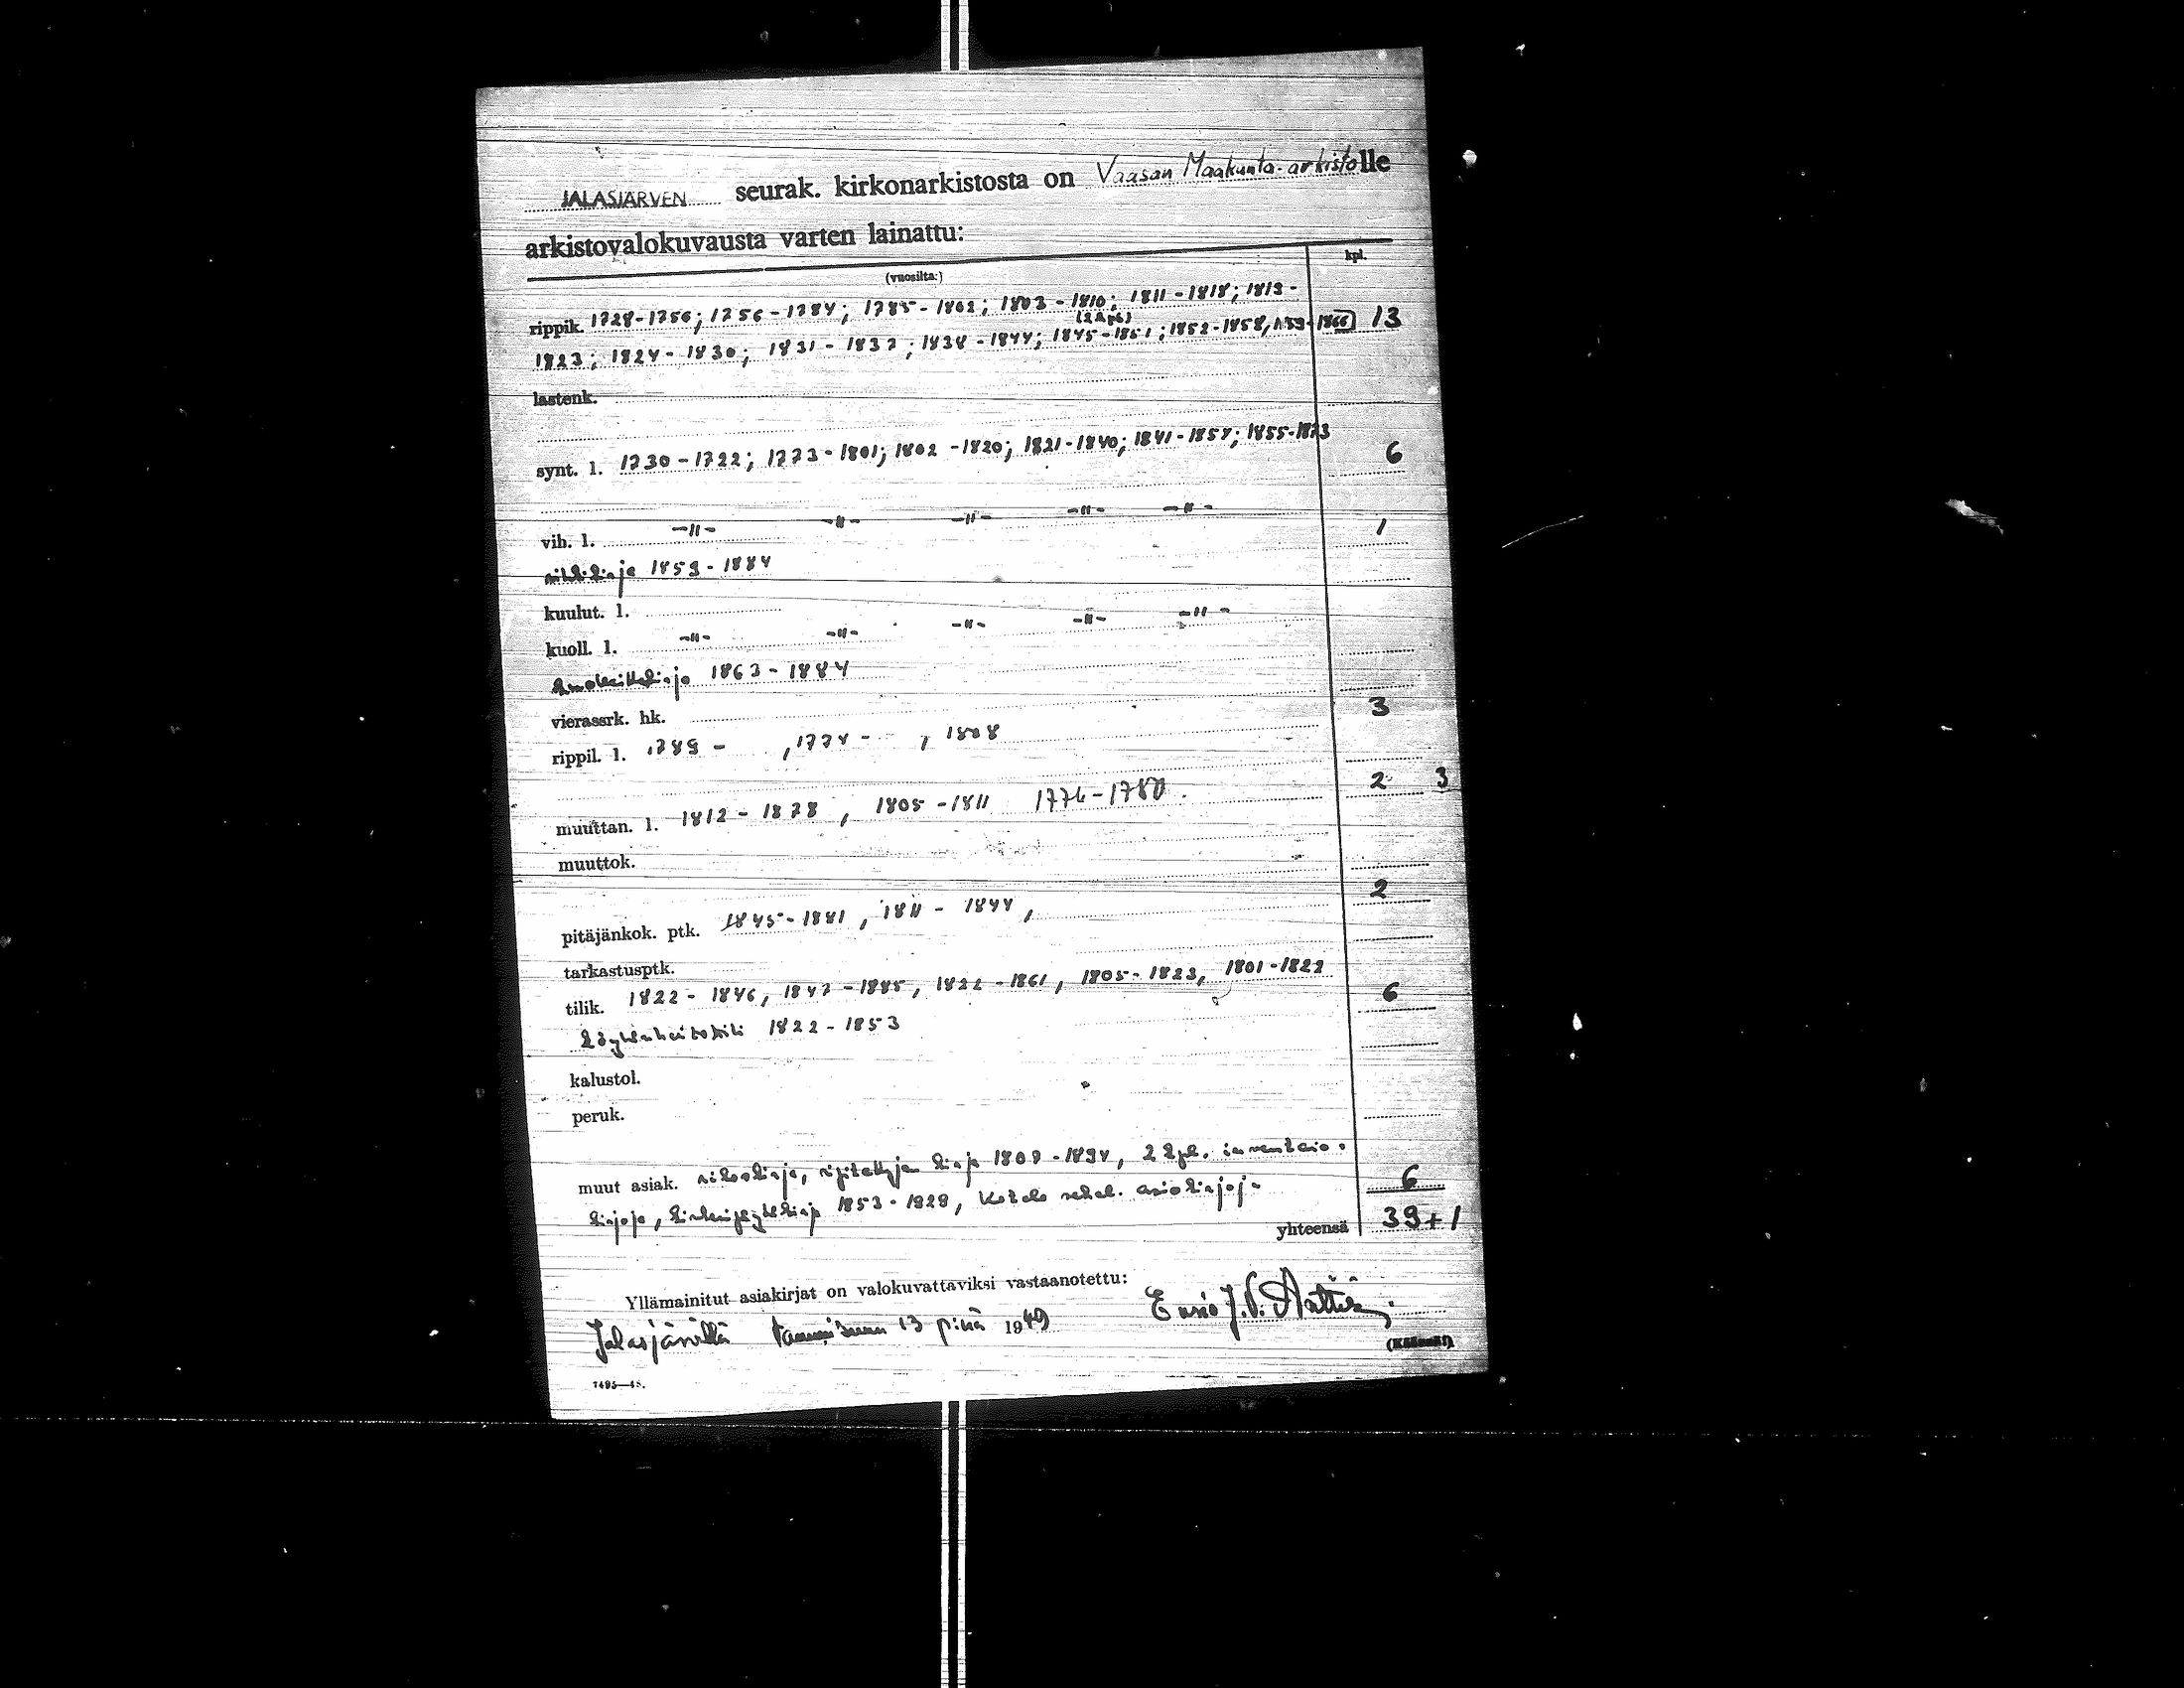 JALASJÄRVEN seurak. kirkonarkistosta on Vaasan Maakunta-arkistolle
arkistovalokuvausta varten lainattu:
(vuosilta:) kpl.
rippik. 1728-1756; 1756-1784; 1785-1802; 1803-1810; 1811-1818; 1818-
1823; 1824-1830; 1831-1837; 1838-1844; 1845-1851 (2 kpl); 1852-1858, 159-1866 13
lastenk.
synt. l. 1730-1722; 1773-1801; 1802-1820; 1821-1840; 1841-1857; 1855-1873 6
vih. l. -"- -"- -"- -"- -"- 1
1859-1884
kuulut. l.
kuoll. l. -"- -"- -"- -"- -"-
1863-1884
vierassrk. hk.
rippil. l. 1789 - , 1774 - , 1808 3
muuttan. l. 1812-1878, 1805-1811 1774-1780. 2 3
muuttok.
pitäjänkok. ptk. 1845-1881, 1811-1844, 2
tarkastusptk.
tilik. 1822-1846, 1847-1885, 1822-1861, 1805-1823, 1801-1822 6
1822-1853
kalustol.
peruk.
muut asiak. 2 kpl. 6
1853-1828,
yhteensä 39+1
Yllämainitut asiakirjat on valokuvattaviksi vastaanotettu:
Jalasjärvellä tammikuun 13 p:nä 1949
(Käännä!)
7495—48.